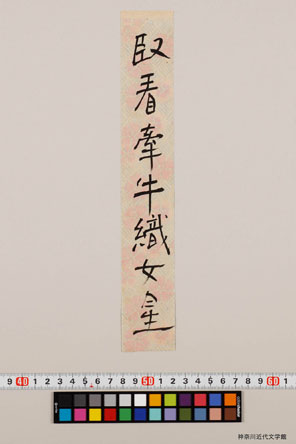 臥看牽牛織女星
9 40 1 2 3 4 5 6 7 8 9 50 1 2 3 4 5 6 7 8 9 60 1
神奈川近代文学館